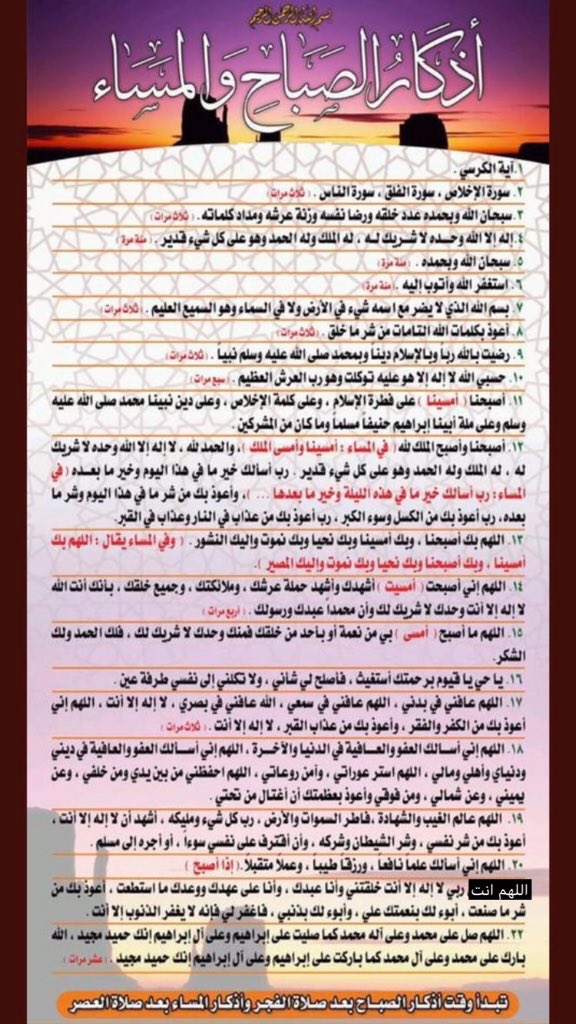 بسم الله الرحمن الرحيم
أذكار الصباح والمساء
١. آية الكرسي .
٢. سورة الإخلاص ، سورة الفلق ، سورة الناس . ( ثلاث مرات )
٣. سبحان الله وبحمده عدد خلقه ورضا نفسه وزنة عرشه ومداد كلماته . ( ثلاث مرات )
٤. إله إلا الله وحـــده لا شـريك لـه ، له الملك وله الحمد وهو على كل شيء قدير . ( مئة مرة )
٥. سبحان الله وبحمده . ( مئة مرة )
٦. أستغفر الله وأتوب إليه . ( مئة مرة )
٧. بسم الله الذي لا يضر مع اسمه شيء في الأرض ولا في السماء وهو السميع العليم . ( ثلاث مرات )
٨. أعوذ بكلمات الله التامات من شر ما خلق . ( ثلاث مرات )
٩. رضيت بالله رباً وبالإسلام ديناً وبمحمد صلى الله عليه وسلم نبياً . ( ثلاث مرات )
١٠. حسبي الله لا إله إلا هو عليه توكلت وهو رب العرش العظيم . ( سبع مرات )
١١. أصبحنا ( أمسينا ) على فطرة الإسلام ، وعلى كلمة الإخلاص ، وعلى دين نبينا محمد صلى الله عليه
وسلم وعلى ملة أبينا إبراهيم حنيفاً مسلماً وما كان من المشركين .
١٢. أصبحنا وأصبح الملك لله ( في المساء : أمسينا وأمسى الملك ) ، والحمد لله ، لا إله إلا الله وحده لا شريك
له ، له الملك وله الحمد وهو على كل شيء قدير . رب أسألك خير ما في هذا اليوم وخير ما بعـــده ( في
المساء : رب أسألك خير ما في هذه الليلة وخير ما بعدها ... ) ، وأعوذ بك من شر ما في هذا اليوم وشر ما
بعده، رب أعوذ بك من الكسل وسوء الكبر ، رب أعوذ بك من عذاب في النار وعذاب في القبر.
١٣. اللهم بك أصبحنا ، وبك أمسينا وبك نحيا وبك نموت وإليك النشور . ( وفي المساء يقال : اللهم بك
أمسينا ، وبك أصبحنا وبك نحيا وبك نموت وإليك المصير ).
١٤. اللهم إني أصبحت ( أمسيت ) أشهدك وأشهد حملة عرشك ، وملائكتك ، وجميع خلقك ، بأنك أنت الله
لا إله إلا أنت وحدك لا شريك لك وأن محمداً عبدك ورسولك . ( أربع مرات )
١٥. اللهم ما أصبح ( أمسى ) بي من نعمة أو بأحد من خلقك فمنك وحدك لا شريك لك ، فلك الحمد ولك
الشكر.
١٦. يا حي يا قيوم برحمتك أستغيث ، فأصلح لي شأني ، ولا تكلني إلى نفسي طرفة عين .
١٧. اللهم عافني في بدني ، اللهم عافني في سمعي ، الله عافني في بصري ، لا إله إلا أنت ، اللهم إني
أعوذ بك من الكفر والفقر ، وأعوذ بك من عذاب القبر ، لا إله إلا أنت . ( ثلاث مرات )
١٨. اللهم إني أســألك العفو والعــافية في الدنيا والآخـرة ، اللهم إني أســألك العفو والعافية في ديني
ودنياي وأهلي ومالي ، اللهم استر عوراتي ، وآمن روعاتي ، اللهم احفظني من بين يدي ومن خلفي ، وعن
يميني ، وعن شمالي ، ومن فوقي وأعوذ بعظمتك أن أغتال من تحتي .
١٩. اللهم عالم الغيب والشهادة ، فاطر السموات والأرض ، رب كل شيء ومليكه ، أشهد أن لا إله إلا أنت ،
أعوذ بك من شر نفسي ، وشر الشيطان وشركه ، وأن أقترف على نفسي سوءاً ، أو أجره إلى مسلم .
٢٠. اللهم إني أسألك علماً نافعاً ، ورزقاً طيباً ، وعملاً متقبلاً. ( إذا أصبح )
اللهم انت ربي لا إله إلا أنت خلقتني وأنا عبدك ، وأنا على عهدك ووعدك ما استطعت ، أعوذ بك من
شر ما صنعت ، أبوء لك بنعمتك علي ، وأبوء لك بذنبي ، فاغفر لي فإنه لا يغفر الذنوب إلا أنت .
٢٢. اللهم صل على محمد وعلى آله محمد كما صليت على إبراهيم وعلى آل إبراهيم إنك حميد مجيد ، الله
بارك على محمد وعلى آل محمد كما باركت على إبراهيم وعلى آل إبراهيم إنك حميد مجيد . ( عشر مرات )
تبدأ وقت أذكار الصباح بعد صلاة الفجر وأذكار المساء بعد صلاة العصر